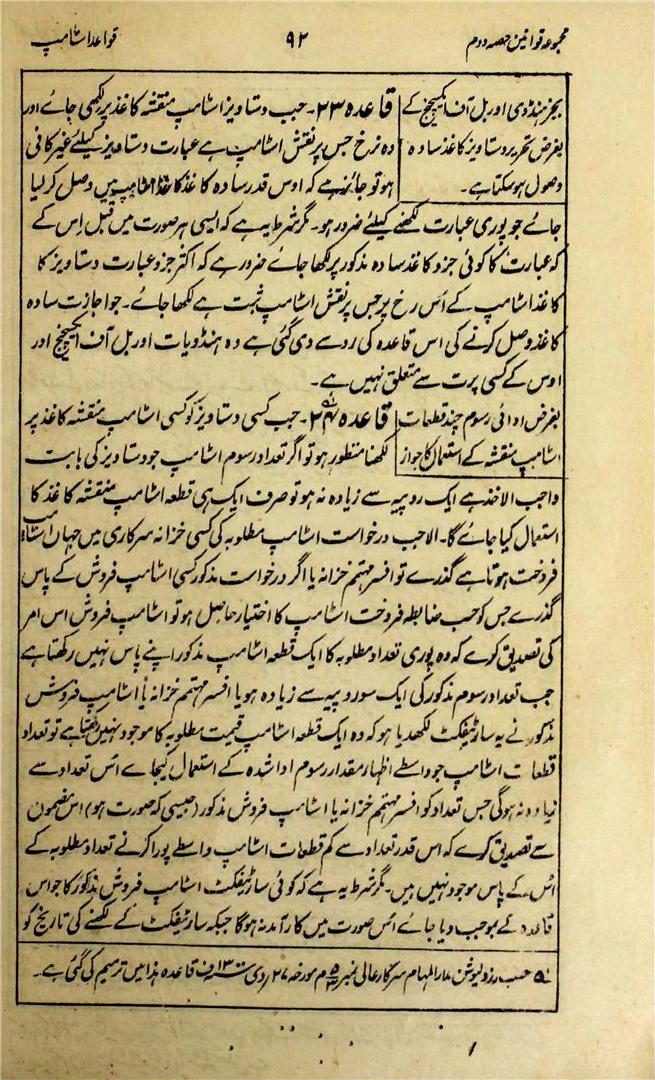 مجموعہ قوانین حصہ دوم
۹۲
قواعد اسٹامپ
بجز ہنڈوی اور بل آف ایکسچینج کے
بغرض تحریر دستاویز کاغذ سادہ
وصول ہوسکتا ہے۔
قاعدہ ۲۳۔ جب دستاویز اسٹامپ منقشہ کاغذ پر لکھی جائے اور
وہ رخ جس پر نقش اسٹامپ ہے عبارت دستاویز کیلئے غیر کافی
ہو تو جائز ہے کہ اوس قدر سادہ کاغذ کاغذ اسٹامپ میں وصل کر لیا
جائے جو پوری عبارت لکھنے کیلئے ضرور ہو۔ مگر شرط یہ ہے کہ ایسی ہر صورت میں قبل اِس کے
کہ عبارت کا کوئی جزو کاغذ سادہ مذکور پر لکھا جائے ضرور ہے کہ اکثر جزو عبارت دستاویز کا
کاغذ اسٹامپ کے اُس رخ پر جس پر نقش اسٹامپ ثبت ہے لکھا جائے۔ جو اجازت سادہ
کاغذ وصل کرنے کی اس قاعدہ کی رو سے دی گئی ہے وہ ہنڈویات اور بل آف ایکسچینج اور
اوس کے کسی پرت سے متعلق نہیں ہے۔
بغرض ادائی رسوم چند قطعات
اسٹامپ منقشہ کے استعمال کا جواز
قاعدہ ۲۴۔ جب کسی دستاویز کو کسی اسٹامپ منقشہ کاغذ پر
لکھنا منظور ہو تو اگر تعداد رسوم اسٹامپ جو دستاویز کی بابت
واجب الاخذ ہے ایک روپیہ سے زیادہ نہ ہو تو صرف ایک ہی قطعہ اسٹامپ منقشہ کاغذ کا
استعمال کیا جائے گا۔ الا جب درخواست اسٹامپ مطلوبہ کی کسی خزانہ سرکاری میں جہاں اسٹامپ
فروخت ہوتا ہے گذرے تو افسر مہتمم خزانہ یا اگر درخواست مذکور کسی اسٹامپ فروش کے پاس
گذرے جس کو حسب ضابطہ فروخت اسٹامپ کا اختیار حاصل ہو تو اسٹامپ فروش اس امر
کی تصدیق کرے کہ وہ پوری تعداد مطلوبہ کا ایک قطعہ اسٹامپ مذکور اپنے پاس نہیں رکھتا ہے
جب تعداد رسوم مذکور کی ایک سو روپیہ سے زیادہ ہو یا افسر مہتمم خزانہ یا اسٹامپ فروش
مذکور نے یہ سارٹیفکٹ لکھدیا ہو کہ وہ ایک قطعہ اسٹامپ قیمت مطلوبہ کا موجود نہیں رکھتا ہے تو تعداد
قطعات اسٹامپ جو واسطے اظہار مقدار رسوم ادا شدہ کے استعمال کیجائے اُس تعداد سے
زیادہ نہ ہوگی جس تعداد کو افسر مہتمم خزانہ یا اسٹامپ فروش مذکور (جیسی کہ صورت ہو) اس مضمون
سے تصدیق کرے کہ اس قدر تعداد سے کم قطعات اسٹامپ واسطے پورا کرنے تعداد مطلوبہ کے
اُس کے پاس موجود نہیں ہیں۔ مگر شرط یہ ہے کہ کوئی سارٹیفکٹ اسٹامپ فروش مذکور کا جو اس
قاعدہ کے بموجب دیا جائے اُس صورت میں کارآمد نہ ہوگا جبکہ سارٹیفکٹ کے لکھنے کی تاریخ کو
حسب رزولیوشن مدارالمہام سرکار عالی نمبر مورخہ ۲۷ دی قاعدہ ہذا میں ترمیم کی گئی ہے۔